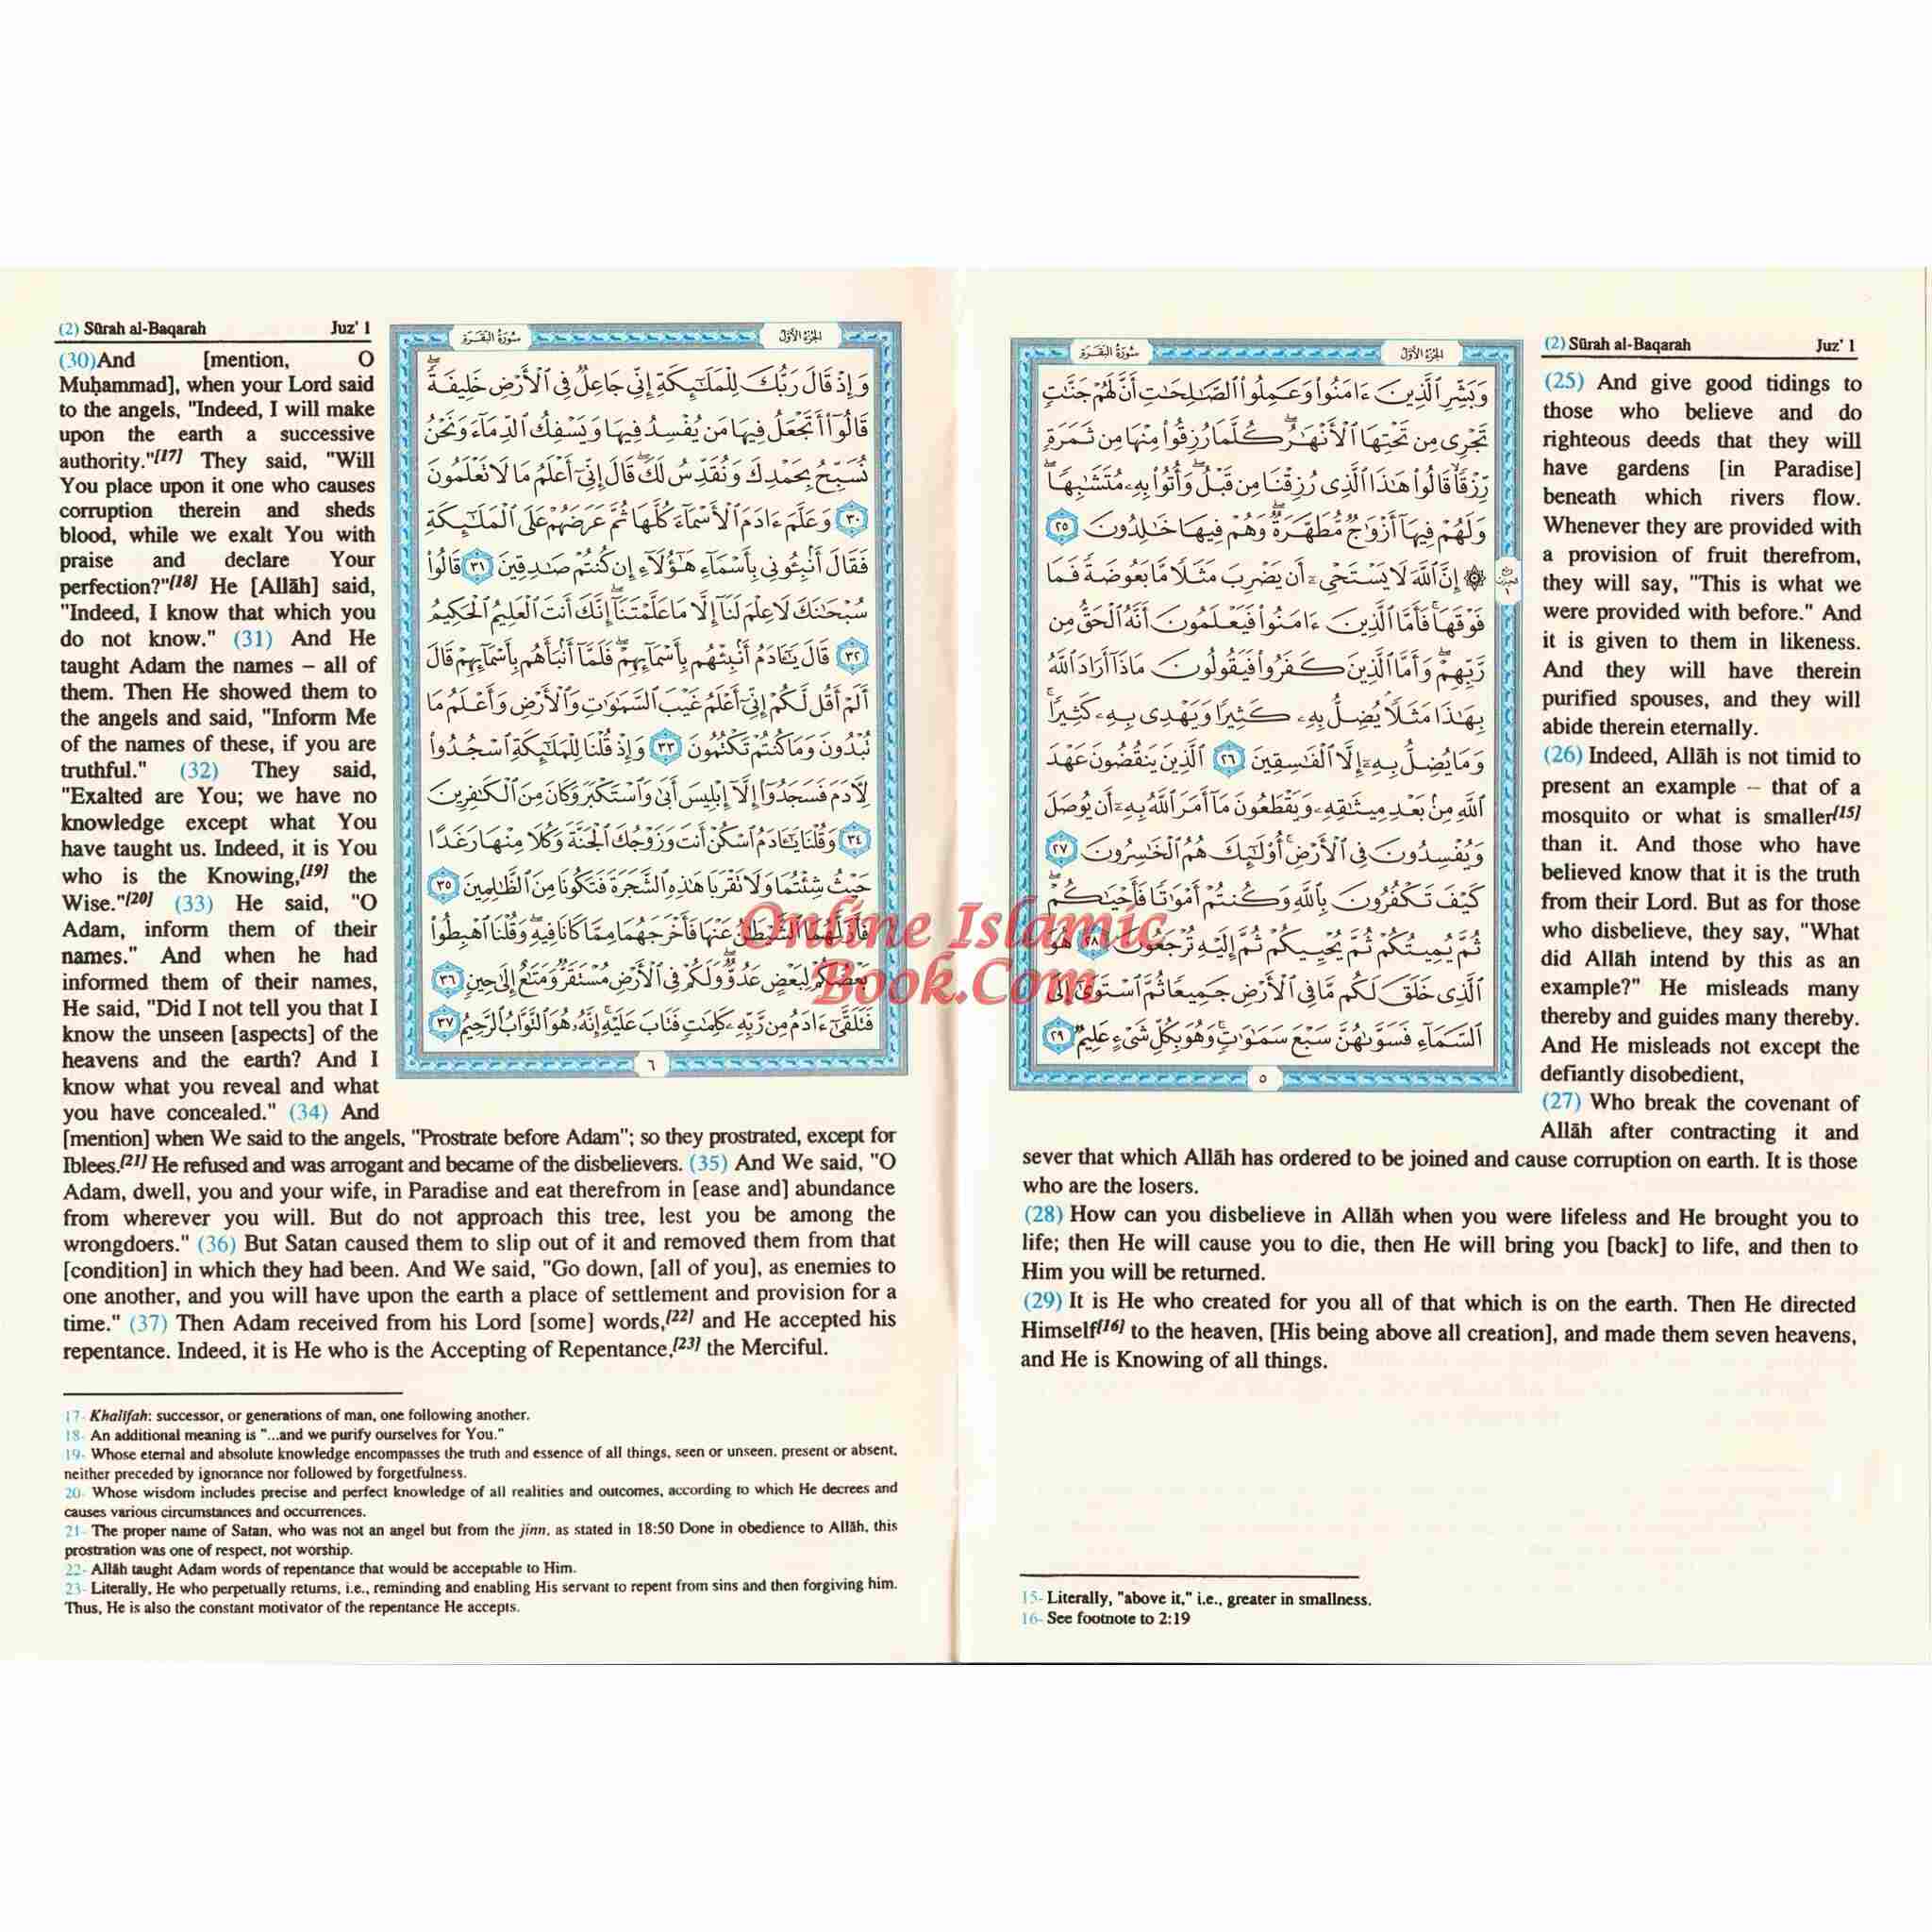 (2) Sūrah al-Baqarah Juz' 1
(30)And [mention, O
Muḥammad], when your Lord said
to the angels, "Indeed, I will make
upon the earth a successive
authority."[17] They said, "Will
You place upon it one who causes
corruption therein and sheds
blood, while we exalt You with
praise and declare Your
perfection?"[18] He [Allāh] said,
"Indeed, I know that which you
do not know." (31) And He
taught Adam the names – all of
them. Then He showed them to
the angels and said, "Inform Me
of the names of these, if you are
truthful." (32) They said,
"Exalted are You; we have no
knowledge except what You
have taught us. Indeed, it is You
who is the Knowing,[19] the
Wise."[20] (33) He said, "O
Adam, inform them of their
names." And when he had
informed them of their names,
He said, "Did I not tell you that I
know the unseen [aspects] of the
heavens and the earth? And I
know what you reveal and what
you have concealed." (34) And
[mention] when We said to the angels, "Prostrate before Adam"; so they prostrated, except for
Iblees.[21] He refused and was arrogant and became of the disbelievers. (35) And We said, "O
Adam, dwell, you and your wife, in Paradise and eat therefrom in [ease and] abundance
from wherever you will. But do not approach this tree, lest you be among the
wrongdoers." (36) But Satan caused them to slip out of it and removed them from that
[condition] in which they had been. And We said, "Go down, [all of you], as enemies to
one another, and you will have upon the earth a place of settlement and provision for a
time." (37) Then Adam received from his Lord [some] words,[22] and He accepted his
repentance. Indeed, it is He who is the Accepting of Repentance,[23] the Merciful.
17- Khalīfah: successor, or generations of man, one following another.
18- An additional meaning is "...and we purify ourselves for You."
19- Whose eternal and absolute knowledge encompasses the truth and essence of all things, seen or unseen, present or absent,
neither preceded by ignorance nor followed by forgetfulness.
20- Whose wisdom includes precise and perfect knowledge of all realities and outcomes, according to which He decrees and
causes various circumstances and occurrences.
21- The proper name of Satan, who was not an angel but from the jinn, as stated in 18:50 Done in obedience to Allāh, this
prostration was one of respect, not worship.
22- Allāh taught Adam words of repentance that would be acceptable to Him.
23- Literally, He who perpetually returns, i.e., reminding and enabling His servant to repent from sins and then forgiving him.
Thus, He is also the constant motivator of the repentance He accepts.
الجزء الأول سورة البقرة
وَإِذْ قَالَ رَبُّكَ لِلْمَلَٰٓئِكَةِ إِنِّى جَاعِلٌ فِى ٱلْأَرْضِ خَلِيفَةً ۖ
قَالُوٓا۟ أَتَجْعَلُ فِيهَا مَن يُفْسِدُ فِيهَا وَيَسْفِكُ ٱلدِّمَآءَ وَنَحْنُ
نُسَبِّحُ بِحَمْدِكَ وَنُقَدِّسُ لَكَ ۖ قَالَ إِنِّىٓ أَعْلَمُ مَا لَا تَعْلَمُونَ
٣٠ وَعَلَّمَ ءَادَمَ ٱلْأَسْمَآءَ كُلَّهَا ثُمَّ عَرَضَهُمْ عَلَى ٱلْمَلَٰٓئِكَةِ
فَقَالَ أَنۢبِـُٔونِى بِأَسْمَآءِ هَٰٓؤُلَآءِ إِن كُنتُمْ صَٰدِقِينَ ٣١ قَالُوا۟
سُبْحَٰنَكَ لَا عِلْمَ لَنَآ إِلَّا مَا عَلَّمْتَنَآ ۖ إِنَّكَ أَنتَ ٱلْعَلِيمُ ٱلْحَكِيمُ
٣٢ قَالَ يَٰٓـَٔادَمُ أَنۢبِئْهُم بِأَسْمَآئِهِمْ ۖ فَلَمَّآ أَنۢبَأَهُم بِأَسْمَآئِهِمْ قَالَ
أَلَمْ أَقُل لَّكُمْ إِنِّىٓ أَعْلَمُ غَيْبَ ٱلسَّمَٰوَٰتِ وَٱلْأَرْضِ وَأَعْلَمُ مَا
تُبْدُونَ وَمَا كُنتُمْ تَكْتُمُونَ ٣٣ وَإِذْ قُلْنَا لِلْمَلَٰٓئِكَةِ ٱسْجُدُوا۟
لِـَٔادَمَ فَسَجَدُوٓا۟ إِلَّآ إِبْلِيسَ أَبَىٰ وَٱسْتَكْبَرَ وَكَانَ مِنَ ٱلْكَٰفِرِينَ
٣٤ وَقُلْنَا يَٰٓـَٔادَمُ ٱسْكُنْ أَنتَ وَزَوْجُكَ ٱلْجَنَّةَ وَكُلَا مِنْهَا رَغَدًا
حَيْثُ شِئْتُمَا وَلَا تَقْرَبَا هَٰذِهِ ٱلشَّجَرَةَ فَتَكُونَا مِنَ ٱلظَّٰلِمِينَ ٣٥
فَأَزَلَّهُمَا ٱلشَّيْطَٰنُ عَنْهَا فَأَخْرَجَهُمَا مِمَّا كَانَا فِيهِ ۖ وَقُلْنَا ٱهْبِطُوا۟
بَعْضُكُمْ لِبَعْضٍ عَدُوٌّ ۖ وَلَكُمْ فِى ٱلْأَرْضِ مُسْتَقَرٌّ وَمَتَٰعٌ إِلَىٰ حِينٍ ٣٦
فَتَلَقَّىٰٓ ءَادَمُ مِن رَّبِّهِۦ كَلِمَٰتٍ فَتَابَ عَلَيْهِ ۚ إِنَّهُۥ هُوَ ٱلتَّوَّابُ ٱلرَّحِيمُ ٣٧
٦
الجزء الأول سورة البقرة
وَبَشِّرِ ٱلَّذِينَ ءَامَنُوا۟ وَعَمِلُوا۟ ٱلصَّٰلِحَٰتِ أَنَّ لَهُمْ جَنَّٰتٍ
تَجْرِى مِن تَحْتِهَا ٱلْأَنْهَٰرُ ۖ كُلَّمَا رُزِقُوا۟ مِنْهَا مِن ثَمَرَةٍ
رِّزْقًا ۙ قَالُوا۟ هَٰذَا ٱلَّذِى رُزِقْنَا مِن قَبْلُ ۖ وَأُتُوا۟ بِهِۦ مُتَشَٰبِهًا ۖ
وَلَهُمْ فِيهَآ أَزْوَٰجٌ مُّطَهَّرَةٌ ۖ وَهُمْ فِيهَا خَٰلِدُونَ ٢٥
۞ إِنَّ ٱللَّهَ لَا يَسْتَحْىِۦٓ أَن يَضْرِبَ مَثَلًا مَّا بَعُوضَةً فَمَا
فَوْقَهَا ۚ فَأَمَّا ٱلَّذِينَ ءَامَنُوا۟ فَيَعْلَمُونَ أَنَّهُ ٱلْحَقُّ مِن
رَّبِّهِمْ ۖ وَأَمَّا ٱلَّذِينَ كَفَرُوا۟ فَيَقُولُونَ مَاذَآ أَرَادَ ٱللَّهُ
بِهَٰذَا مَثَلًا ۘ يُضِلُّ بِهِۦ كَثِيرًا وَيَهْدِى بِهِۦ كَثِيرًا ۚ
وَمَا يُضِلُّ بِهِۦٓ إِلَّا ٱلْفَٰسِقِينَ ٢٦ ٱلَّذِينَ يَنقُضُونَ عَهْدَ
ٱللَّهِ مِنۢ بَعْدِ مِيثَٰقِهِۦ وَيَقْطَعُونَ مَآ أَمَرَ ٱللَّهُ بِهِۦٓ أَن يُوصَلَ
وَيُفْسِدُونَ فِى ٱلْأَرْضِ ۚ أُو۟لَٰٓئِكَ هُمُ ٱلْخَٰسِرُونَ ٢٧
كَيْفَ تَكْفُرُونَ بِٱللَّهِ وَكُنتُمْ أَمْوَٰتًا فَأَحْيَٰكُمْ ۖ
ثُمَّ يُمِيتُكُمْ ثُمَّ يُحْيِيكُمْ ثُمَّ إِلَيْهِ تُرْجَعُونَ ٢٨ هُوَ
ٱلَّذِى خَلَقَ لَكُم مَّا فِى ٱلْأَرْضِ جَمِيعًا ثُمَّ ٱسْتَوَىٰٓ إِلَى
ٱلسَّمَآءِ فَسَوَّىٰهُنَّ سَبْعَ سَمَٰوَٰتٍ ۚ وَهُوَ بِكُلِّ شَىْءٍ عَلِيمٌ ٢٩
٥
(2) Sūrah al-Baqarah Juz' 1
(25) And give good tidings to
those who believe and do
righteous deeds that they will
have gardens [in Paradise]
beneath which rivers flow.
Whenever they are provided with
a provision of fruit therefrom,
they will say, "This is what we
were provided with before." And
it is given to them in likeness.
And they will have therein
purified spouses, and they will
abide therein eternally.
(26) Indeed, Allāh is not timid to
present an example – that of a
mosquito or what is smaller[15]
than it. And those who have
believed know that it is the truth
from their Lord. But as for those
who disbelieve, they say, "What
did Allāh intend by this as an
example?" He misleads many
thereby and guides many thereby.
And He misleads not except the
defiantly disobedient,
(27) Who break the covenant of
Allāh after contracting it and
sever that which Allāh has ordered to be joined and cause corruption on earth. It is those
who are the losers.
(28) How can you disbelieve in Allāh when you were lifeless and He brought you to
life; then He will cause you to die, then He will bring you [back] to life, and then to
Him you will be returned.
(29) It is He who created for you all of that which is on the earth. Then He directed
Himself[16] to the heaven, [His being above all creation], and made them seven heavens,
and He is Knowing of all things.
15- Literally, "above it," i.e., greater in smallness.
16- See footnote to 2:19
Online Islamic
Book.Com